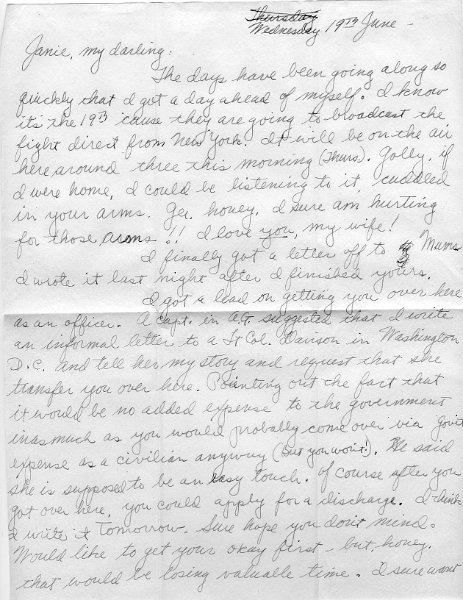 Thursday
Wednesday 19TH June -
Janie, my darling:
The days have been going along so
quickly that I got a day ahead of myself. I know
it's the 19TH 'cause they are going to broadcast the
fight direct from New York. It will be on the air
here around three this morning (Thurs). Golly, if
I were home, I could be listening to it, cuddled
in your arms. Gee, honey, I sure am hurting
for those arms!! I love you, my wife!
I finally got a letter off to Mums
I wrote it last night after I finished yours.
I got a lead on getting you over here
as an officer. A Capt. in AG suggested that I write
an informal letter to a Lt Col. Davison in Washington
D.C. and tell her my story and request that she
transfer you over here. Pointing out the fact that
it would be no added expense to the government
inasmuch as you would probably come over via gov't
expense as a civilian anyway (But you won't). He said
she is supposed to be an easy touch. Of course after you
got over here, you could apply for a discharge. I think
I write it tomorrow. Sure hope you don't mind.
Would like to get your okay first - but, honey,
that would be losing valuable time. I sure want